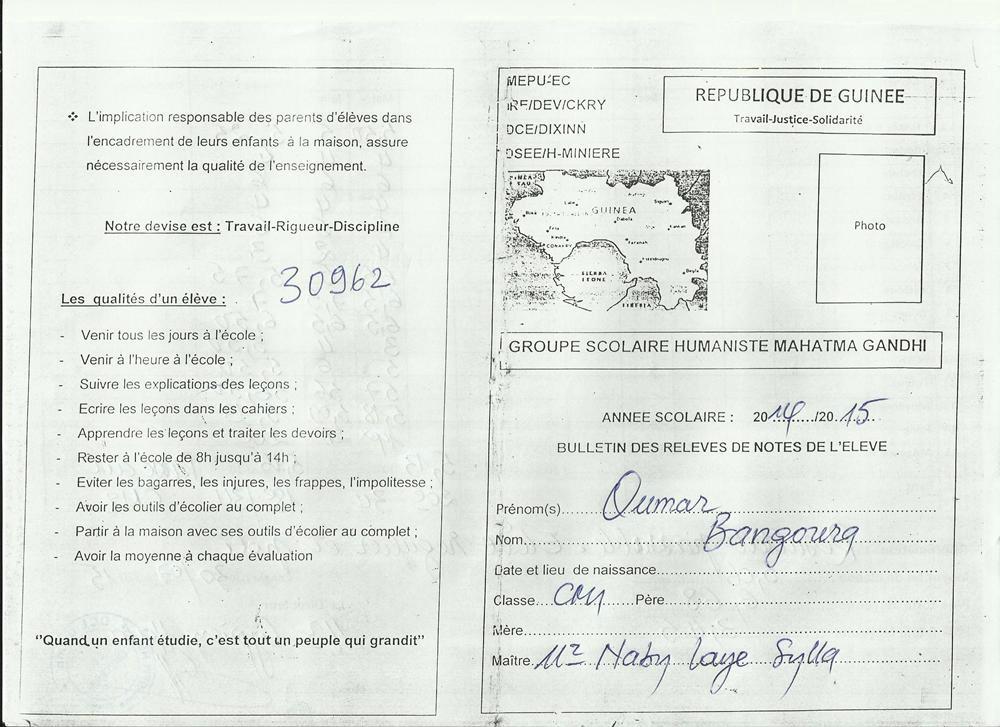 ❖ L'implication responsable des parents d'élèves dans
l'encadrement de leurs enfants à la maison, assure
nécessairement la qualité de l'enseignement.
Notre devise est : Travail-Rigueur-Discipline
30962
Les qualités d'un élève :
- Venir tous les jours à l'école ;
- Venir à l'heure à l'école ;
- Suivre les explications des leçons ;
- Ecrire les leçons dans les cahiers ;
- Apprendre les leçons et traiter les devoirs ;
- Rester à l'école de 8h jusqu'à 14h ;
- Eviter les bagarres, les injures, les frappes, l'impolitesse ;
- Avoir les outils d'écolier au complet ;
- Partir à la maison avec ses outils d'écolier au complet ;
- Avoir la moyenne à chaque évaluation
"Quand un enfant étudie, c'est tout un peuple qui grandit"
MEPU-EC
IRE/DEV/CKRY
DCE/DIXINN
DSEE/H-MINIERE
REPUBLIQUE DE GUINEE
Travail-Justice-Solidarité
GUINEA
CONAKRY
SIERRA
LEONE
LIBERIA
Photo
GROUPE SCOLAIRE HUMANISTE MAHATMA GANDHI
ANNEE SCOLAIRE : 2014/2015
BULLETIN DES RELEVES DE NOTES DE L'ELEVE
Prénom(s) Oumar
Nom Bangoura
Date et lieu de naissance
Classe Père
Mère
Maître Mr Naby Laye Sylla